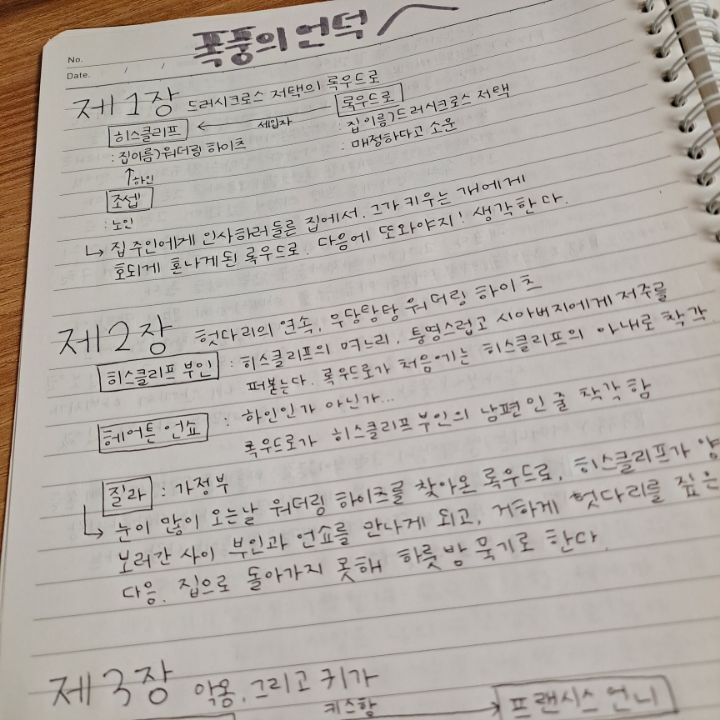 폭풍의 언덕
No.
Date. / /
제1장 드러시크로스 저택의 록우드로
히스클리프 ← 세입자 록우드로
: 집이름) 워더링 하이츠 : 집이름) 드러시크로스 저택
: 매정하다고 소문
↑하인
조셉
: 노인
↳ 집주인에게 인사하러 들른 집에서, 그가 키우는 개에게
호되게 혼나게 된 록우드로. 다음에 또 와야지! 생각한다.
제2장 헛다리의 연속, 우당탕탕 워더링 하이츠
히스클리프 부인 : 히스클리프의 며느리. 퉁명스럽고 시아버지에게 저주를
퍼붓는다. 록우드로가 처음에는 히스클리프의 아내로 착각
헤어튼 언쇼 : 하인인가 아닌가...
록우드로가 히스클리프 부인의 남편인 줄 착각함
질라 : 가정부
↳ 눈이 많이 오는날 워더링 하이츠를 찾아온 록우드로, 히스클리프가
보러간 사이 부인과 언쇼를 만나게 되고, 거하게 헛다리를 짚은
다음, 집으로 돌아가지 못해 하룻밤 묵기로 한다.
제3장 악몽, 그리고 귀가
키스함 → 프랜시스 언니